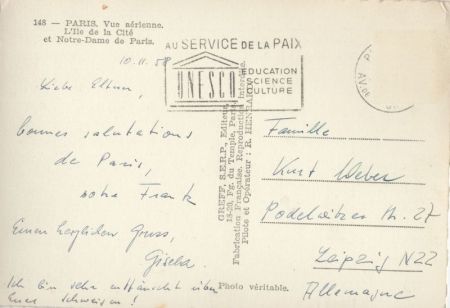 148 — PARIS. Vue aérienne.
L'Ile de la Cité
et Notre-Dame de Paris.
10. 11. 58
AU SERVICE DE LA PAIX
UNESCO
EDUCATION
SCIENCE
CULTURE
Liebe Eltern,
bonnes salutations
de Paris,
votre Frank
Einen herzlichen Gruss,
Gisela.
Ich bin sehr enttäuscht über
Euer Schweigen!
GREFF, S.E.R.P., Editeur,
18-20, Fg. du Temple, Paris
Fabrication Française. Reproduction Interdite.
Pilote et Opérateur : R. HENRARD
Photo véritable.
Famille
Kurt Weber
Str. 27
Leipzig N22
Allemagne